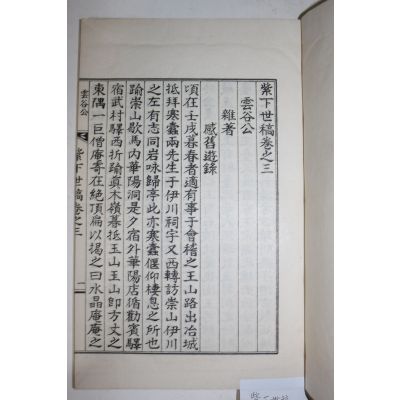 紫下世稿卷之三
雲谷公
雜著
感舊遊錄
頃在壬戌暮春者適有事于會稽之王山路出冶城
抵拜寒蠧兩先生于伊川祠宇又西轉訪崇山伊川
之左有志同岩咏歸亭此亦寒蠧偃仰棲息之所也
踰崇山歇馬内華陽洞是夕宿外華陽店循勸賓驛
宿武村驛西折踰真木嶺暮抵玉山王山即方丈之
東隅一巨僧庵寄在絶頂扁以揭之曰水晶庵庵之
雲谷公
紫下世稿卷之三
一